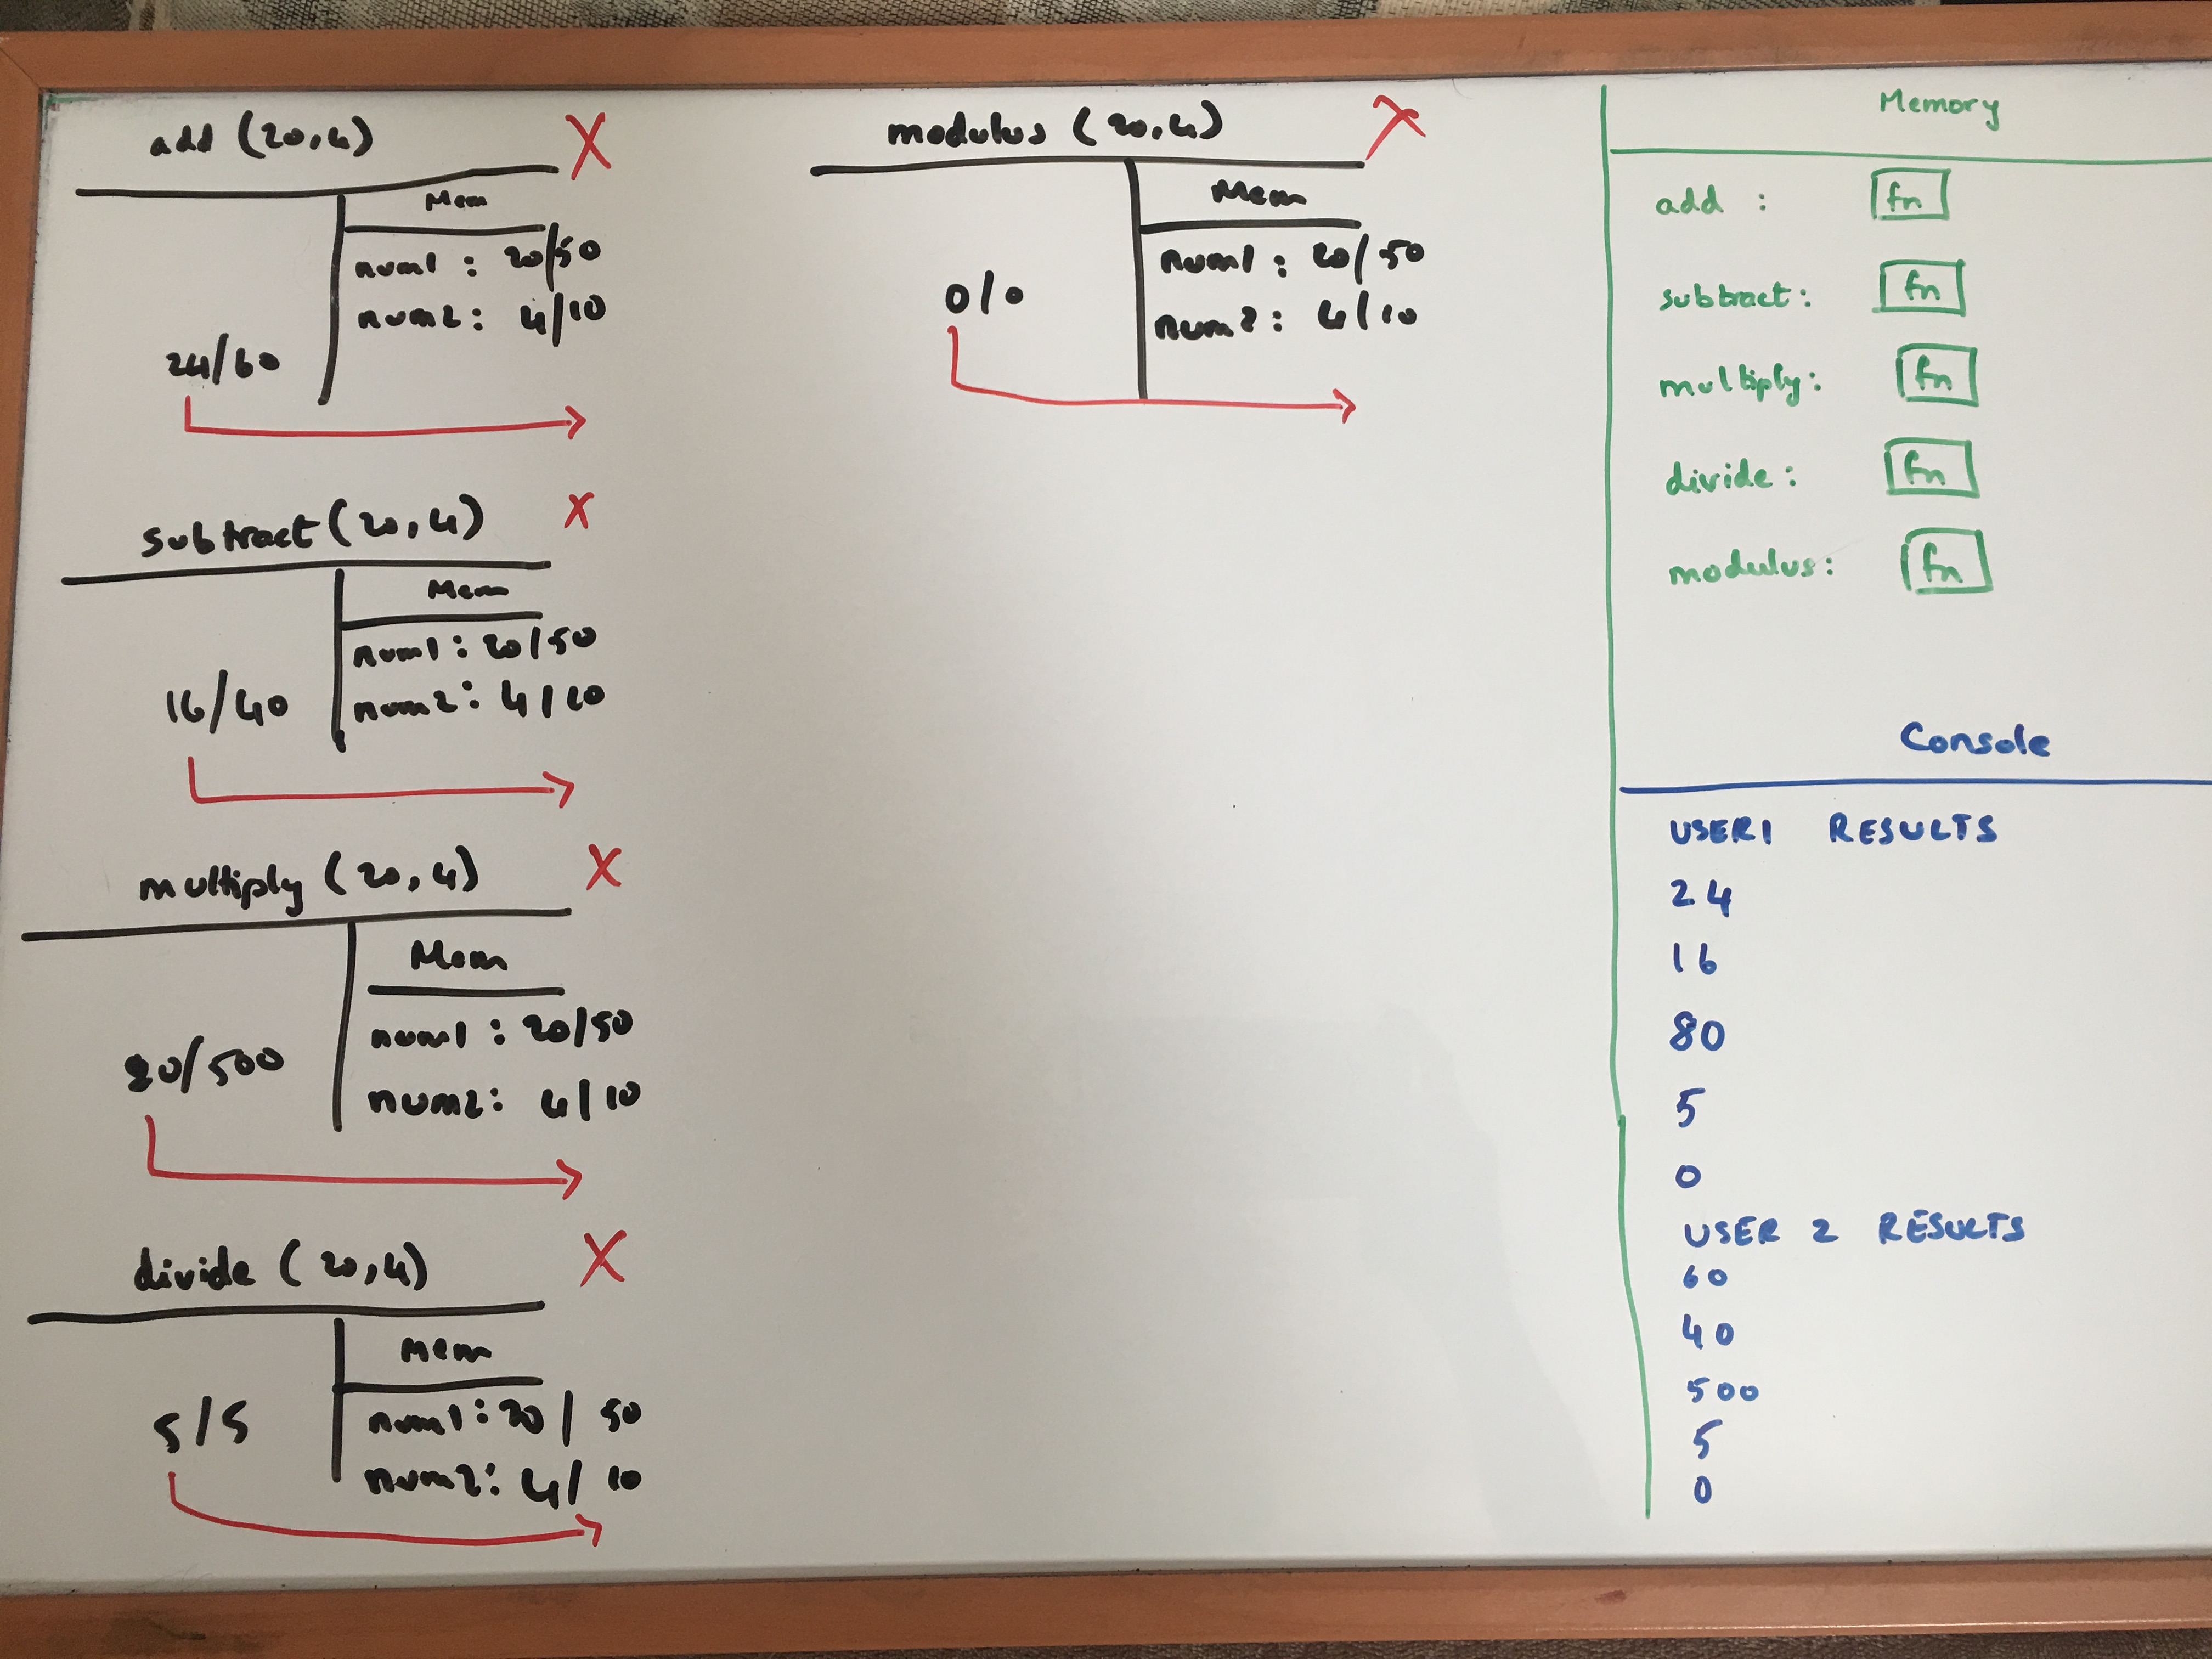 add (20,4) X
Mem
num1 : 20/50
num2: 4/10
24/60
subtract (20,4) X
Mem
num1: 20/50
num2: 4/10
16/40
multiply (20,4) X
Mem
num1 : 20/50
num2: 4/10
80/500
divide (20,4) X
Mem
num1: 20/50
num2: 4/10
5/5
modulus (20,4) X
Mem
num1: 20/50
num2: 4/10
0/0
Memory
add : fn
subtract: fn
multiply: fn
divide: fn
modulus: fn
Console
USER1 RESULTS
24
16
80
5
0
USER 2 RESULTS
60
40
500
5
0